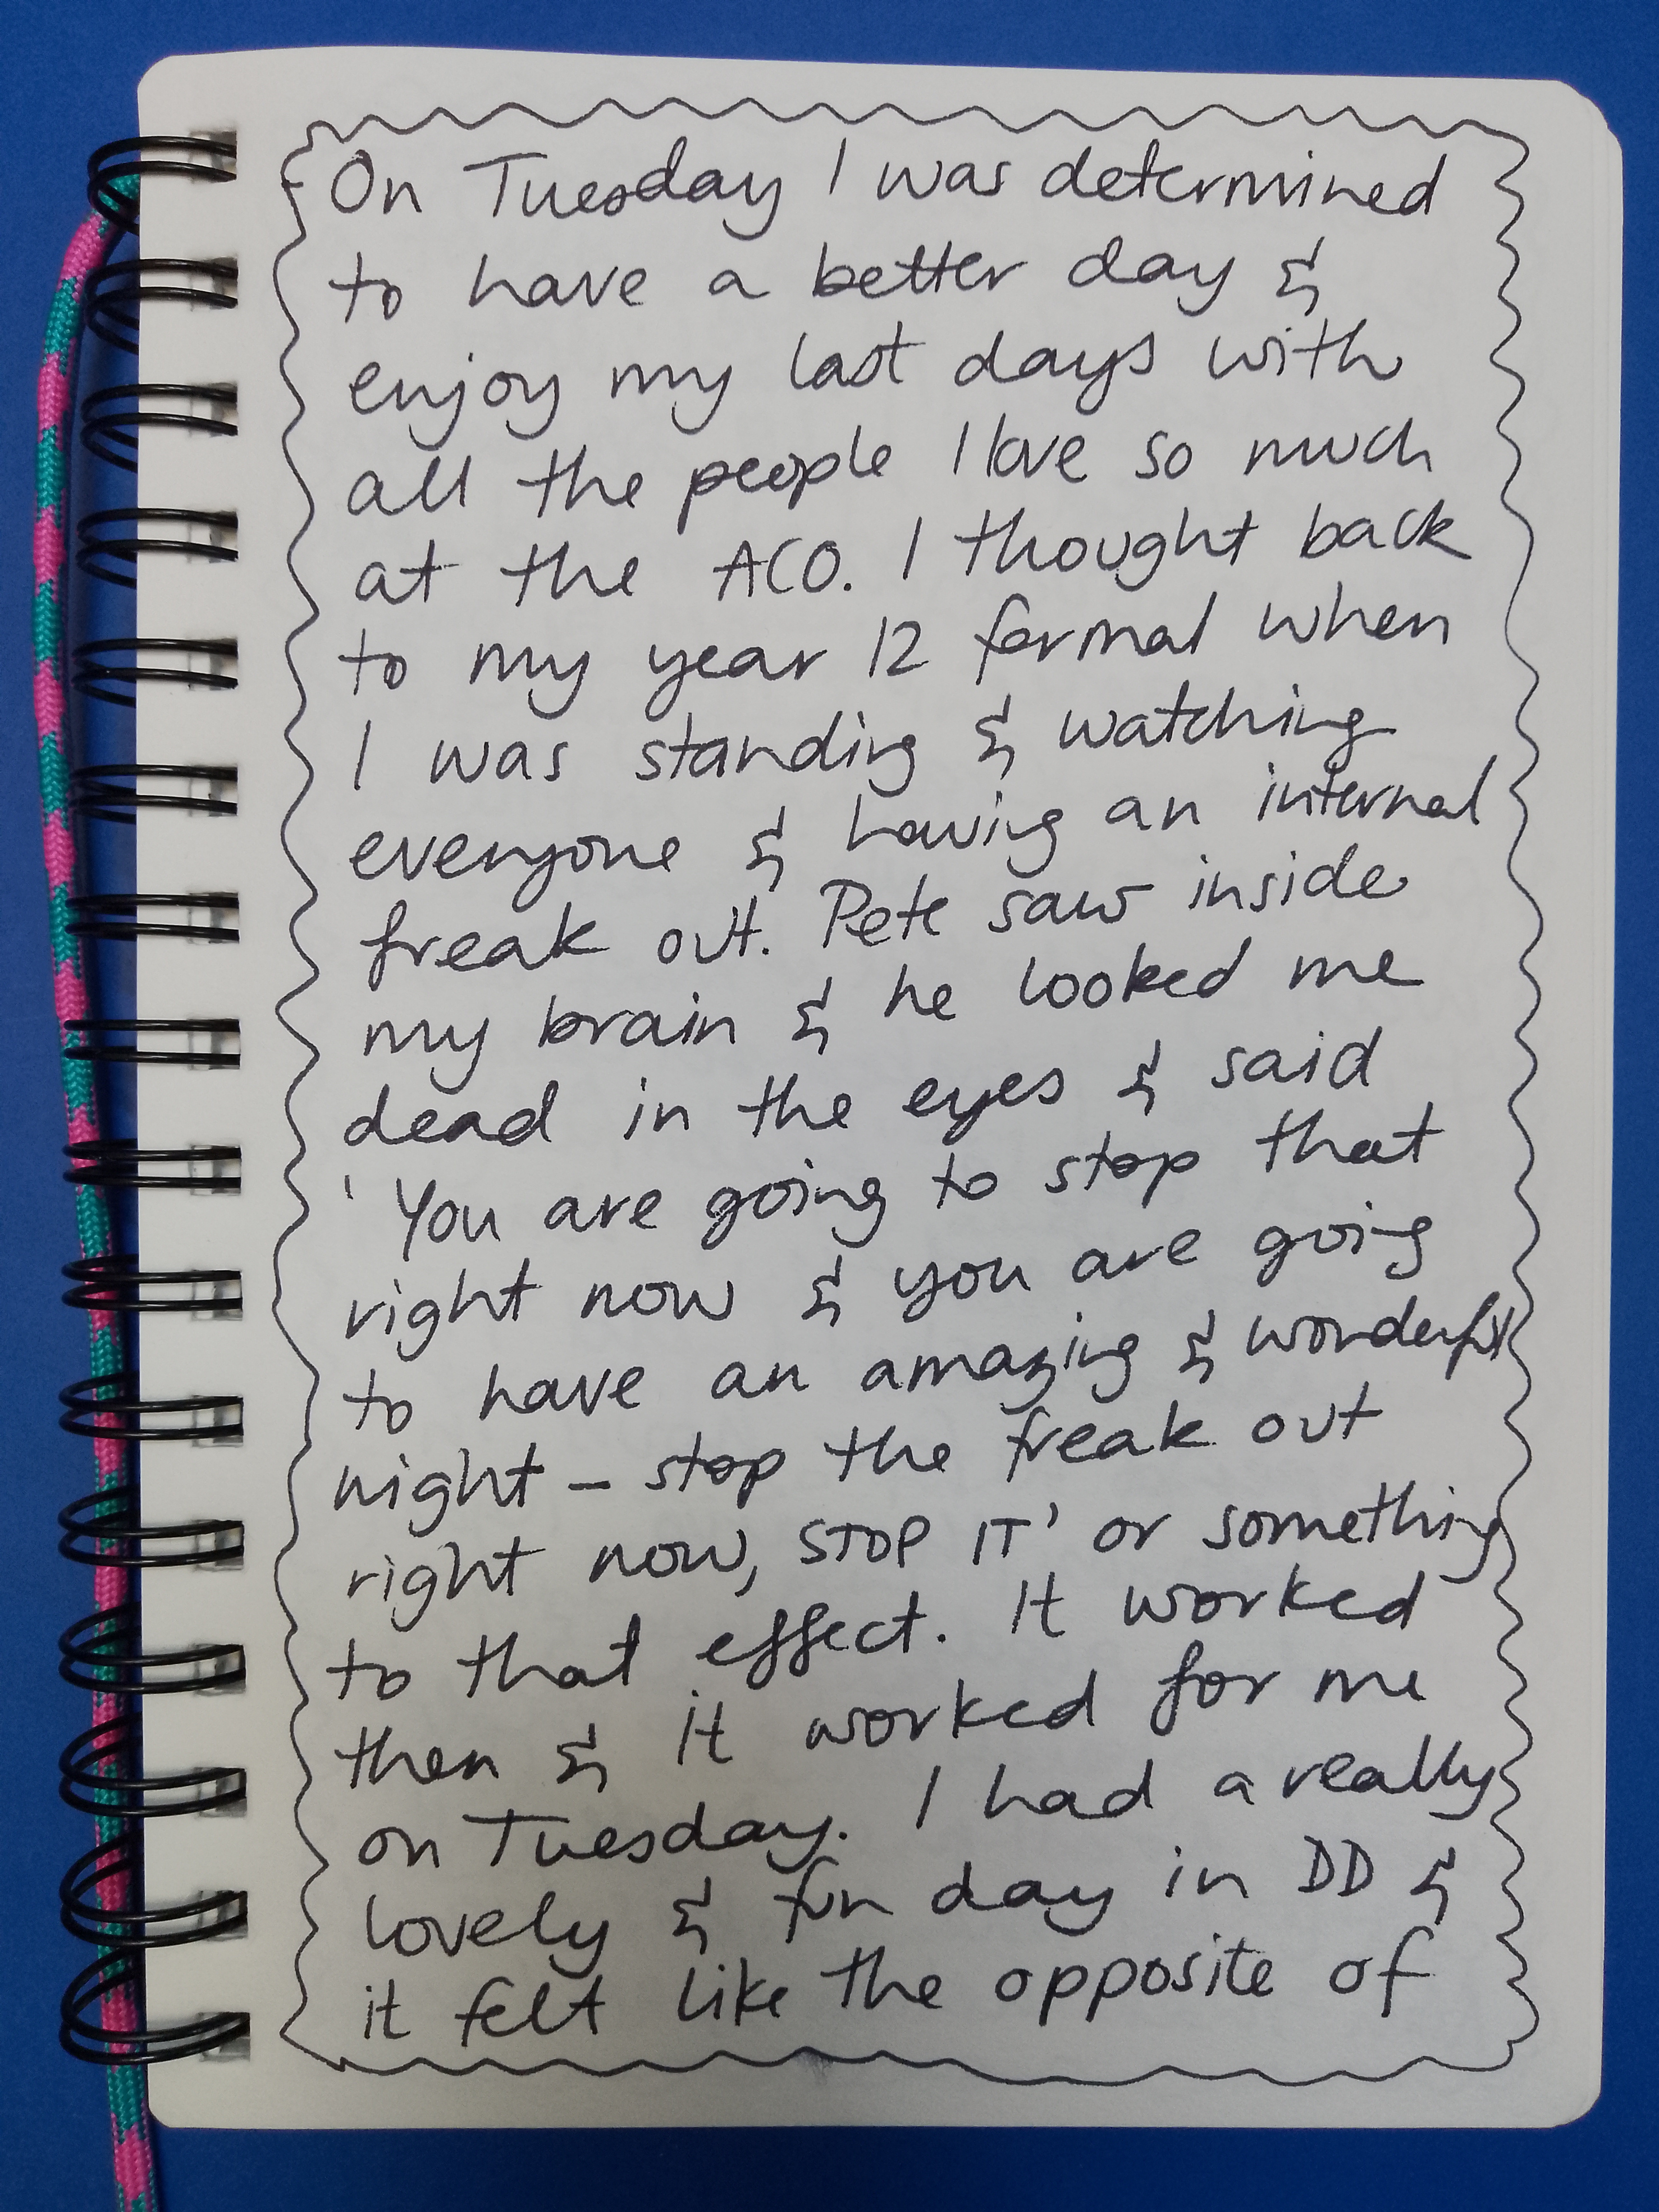 On Tuesday I was determined
to have a better day &
enjoy my last days with
all the people I love so much
at the ACO. I thought back
to my year 12 formal when
I was standing & watching
everyone & having an internal
freak out. Pete saw inside
my brain & he looked me
dead in the eyes & said
'You are going to stop that
right now & you are going
to have an amazing & wonderful
night – stop the freak out
right now, STOP IT' or something
to that effect. It worked
then & it worked for me
on Tuesday. I had a really
lovely & fun day in DD &
it felt like the opposite of